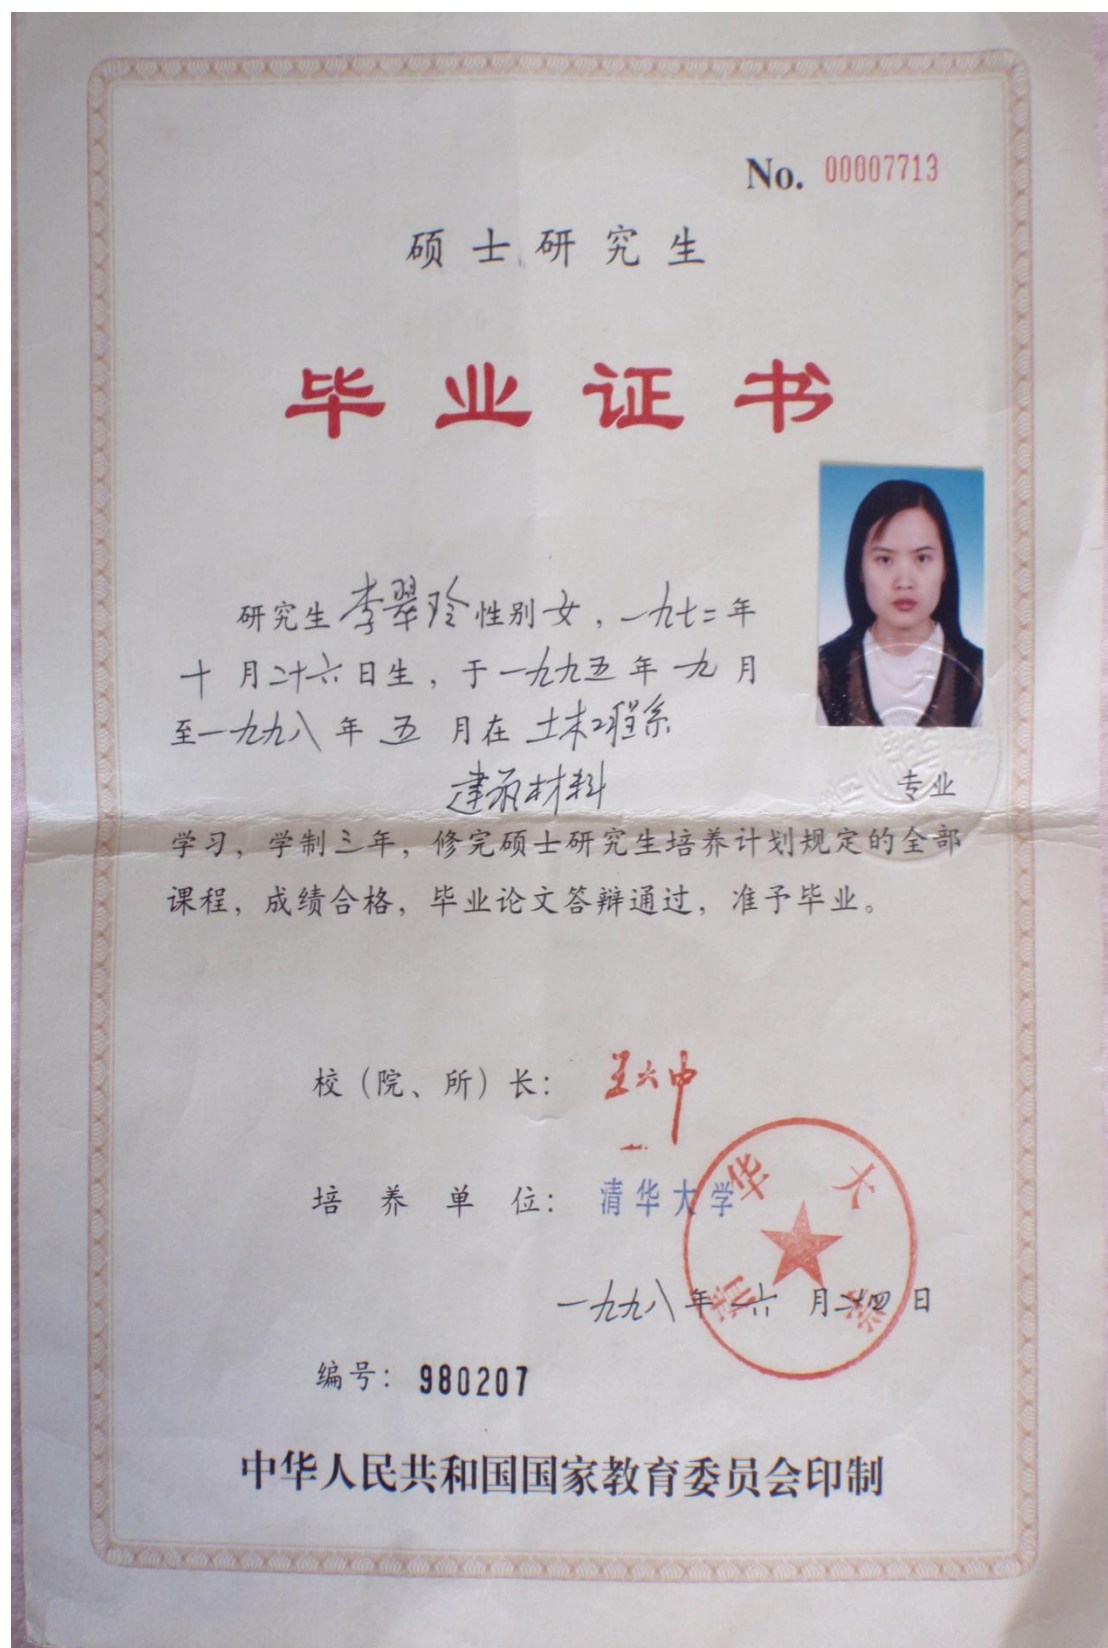 No. 00007713
硕士研究生
毕业证书
研究生李翠玲性别女，一九七二年
十月二十六日生，于一九九五年九月
至一九九八年五月在土木工程系
建筑材料专业
学习，学制三年，修完硕士研究生培养计划规定的全部
课程，成绩合格，毕业论文答辩通过，准予毕业。
校（院、所）长：王大中
培养单位：清华大学
清华大学
一九九八年六月二十四日
编号：980207
中华人民共和国国家教育委员会印制